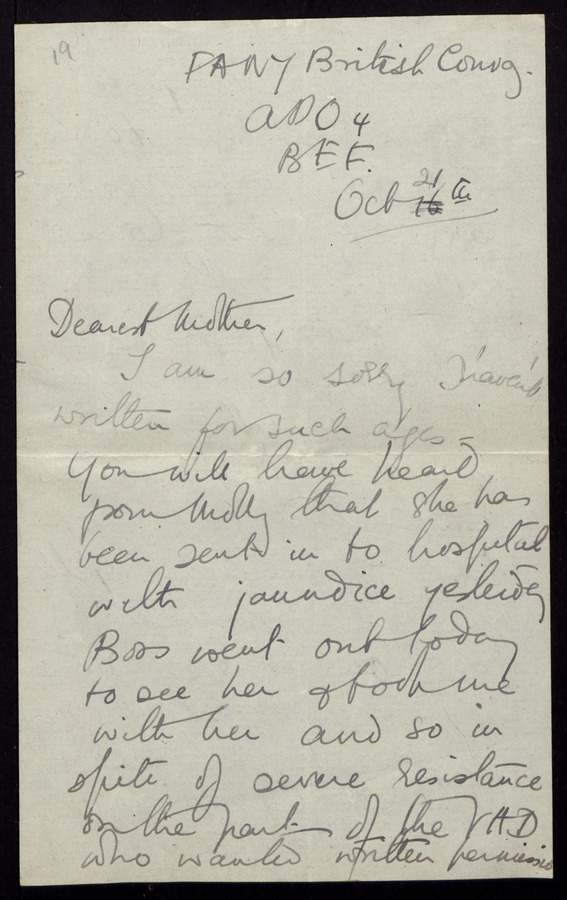 19
FANY British Convoy.
APO 4
BEF.
Oct 16 21 th
Dearest Mother,
I am so sorry I haven't
written for such ages -
You will have heard
from Molly that she has
been sent in to hospital
with jaundice yesterday
Boss went out today
to see her & took me
with her and so in
spite of severe resistance
on the part of the VAD
who wanted written permissio